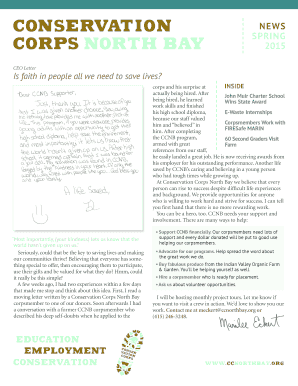 CONSERVATION
CORPS NORTH BAY
NEWS
SPRING
2015
CEO Letter
Is faith in people all we need to save lives?
Dear CCNB Supporter,
Just thank you. It is because
A Life Saved
corps and his surprise at
actually being hired. After
being hired, he learned
work skills and finished
his high school diploma,
because our staff valued
him and "believed" in
him. After completing
the CCNB program,
armed with great
references from our staff,
he easily landed a great job. He is now receiving awards from
his employer for his outstanding performance. Another life
saved by CCNB's caring and believing in a young person
who had tough times while growing up.
At Conservation Corps North Bay we believe that every
person can rise to success despite difficult life experiences
and background. We provide opportunities for anyone
who is willing to work hard and strive for success. I can tell
you first hand that there is no more rewarding work.
You can be a hero, too. CCNB needs your support and
involvement. There are many ways to help:
INSIDE
John Muir Charter School
Wins State Award
E-Waste Internships
Corpsmembers Work with
FIRESafe MARIN
60 Second Graders Visit
Farm
• Support CCNB financially: Our corpsmembers need lots of
support and every dollar donated will be put to good use
helping our corpsmembers.
• Advocate for our programs. Help spread the word about
the great work we do.
• Buy fabulous produce from the Indian Valley Organic Farm
& Garden. You'll be helping yourself as well!
• Hire a corpsmember who is ready for placement.
• Ask us about volunteer opportunities
Seriously, could that be the key to saving lives and making
our communities thrive? Believing that everyone has some-
thing special to offer, then encouraging them to participate,
use their gifts and be valued for what they do? Hmm, could
it really be this simple?
A few weeks ago, I had two experiences within a few days
that made me stop and think about this idea. First, I read a
moving letter written by a Conservation Corps North Bay
corpsmember to one of our donors. Soon afterwards I had
a conversation with a former CCNB corpsmember who
described his deep self doubts when he applied to the
I will be hosting monthly project tours. Let me know if
you want to visit a crew in action. We'd love to show you our
work. Contact me at meckert@ccnorthbay.org or
Marilee Eckert
EDUCATION
EMPLOYMENT
CONSERVATION
WWW.CCNORTHBAY.ORG